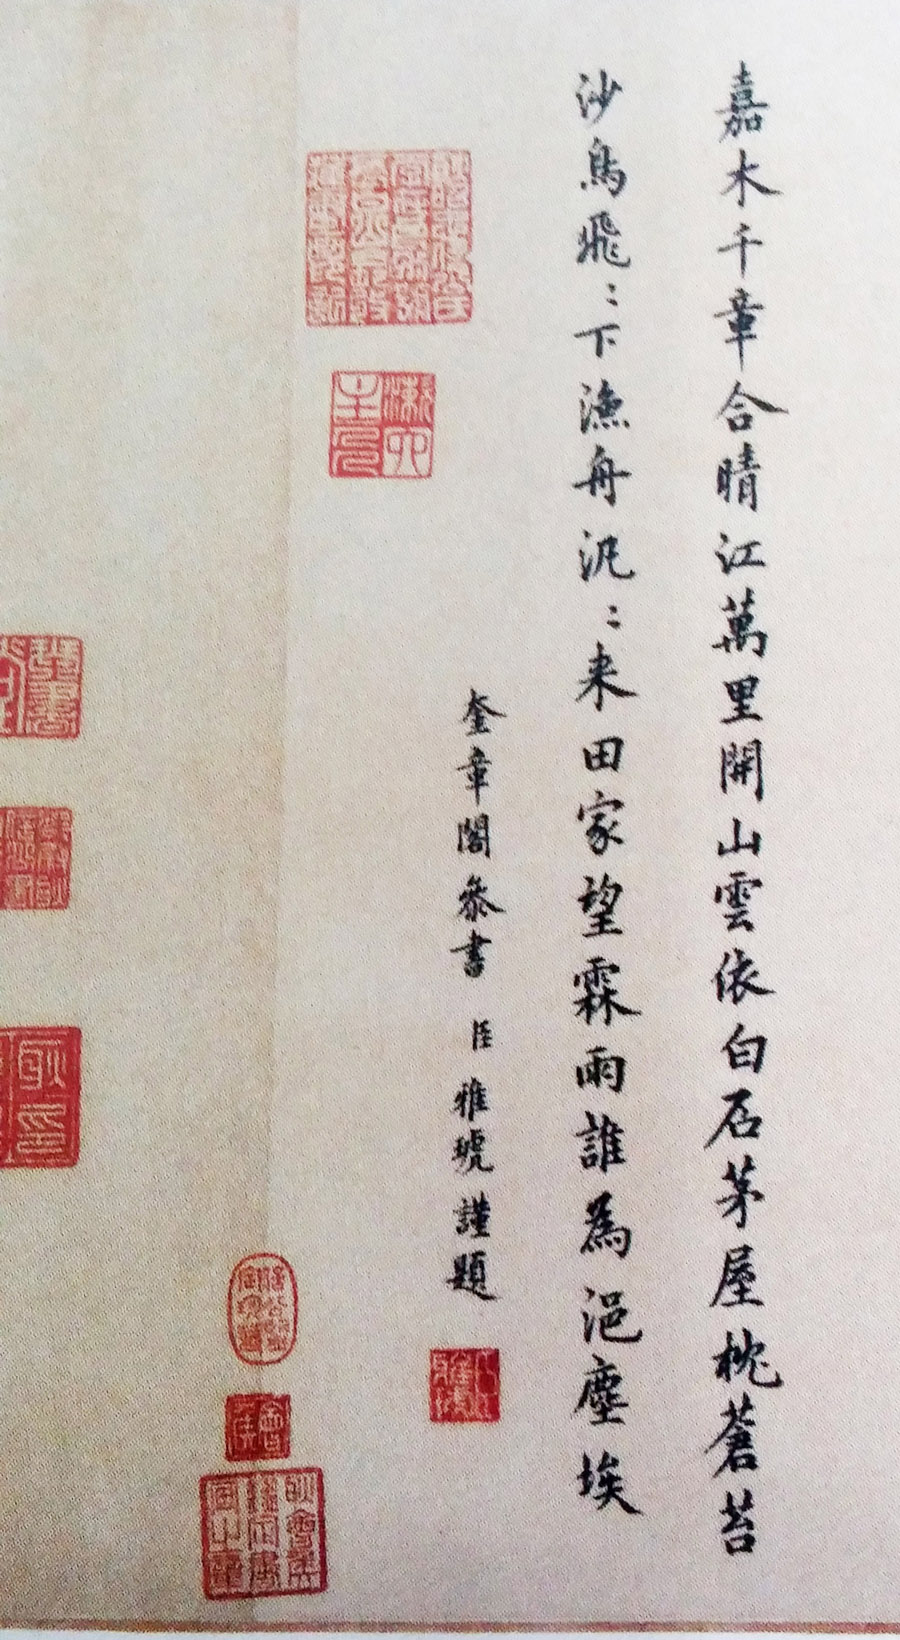 嘉木千章合晴江萬里開山雲依白石茅屋枕蒼苔
沙鳥飛〻下漁舟汎〻来田家望霖雨誰為浥塵埃
奎章閣叅書臣雅琥謹題